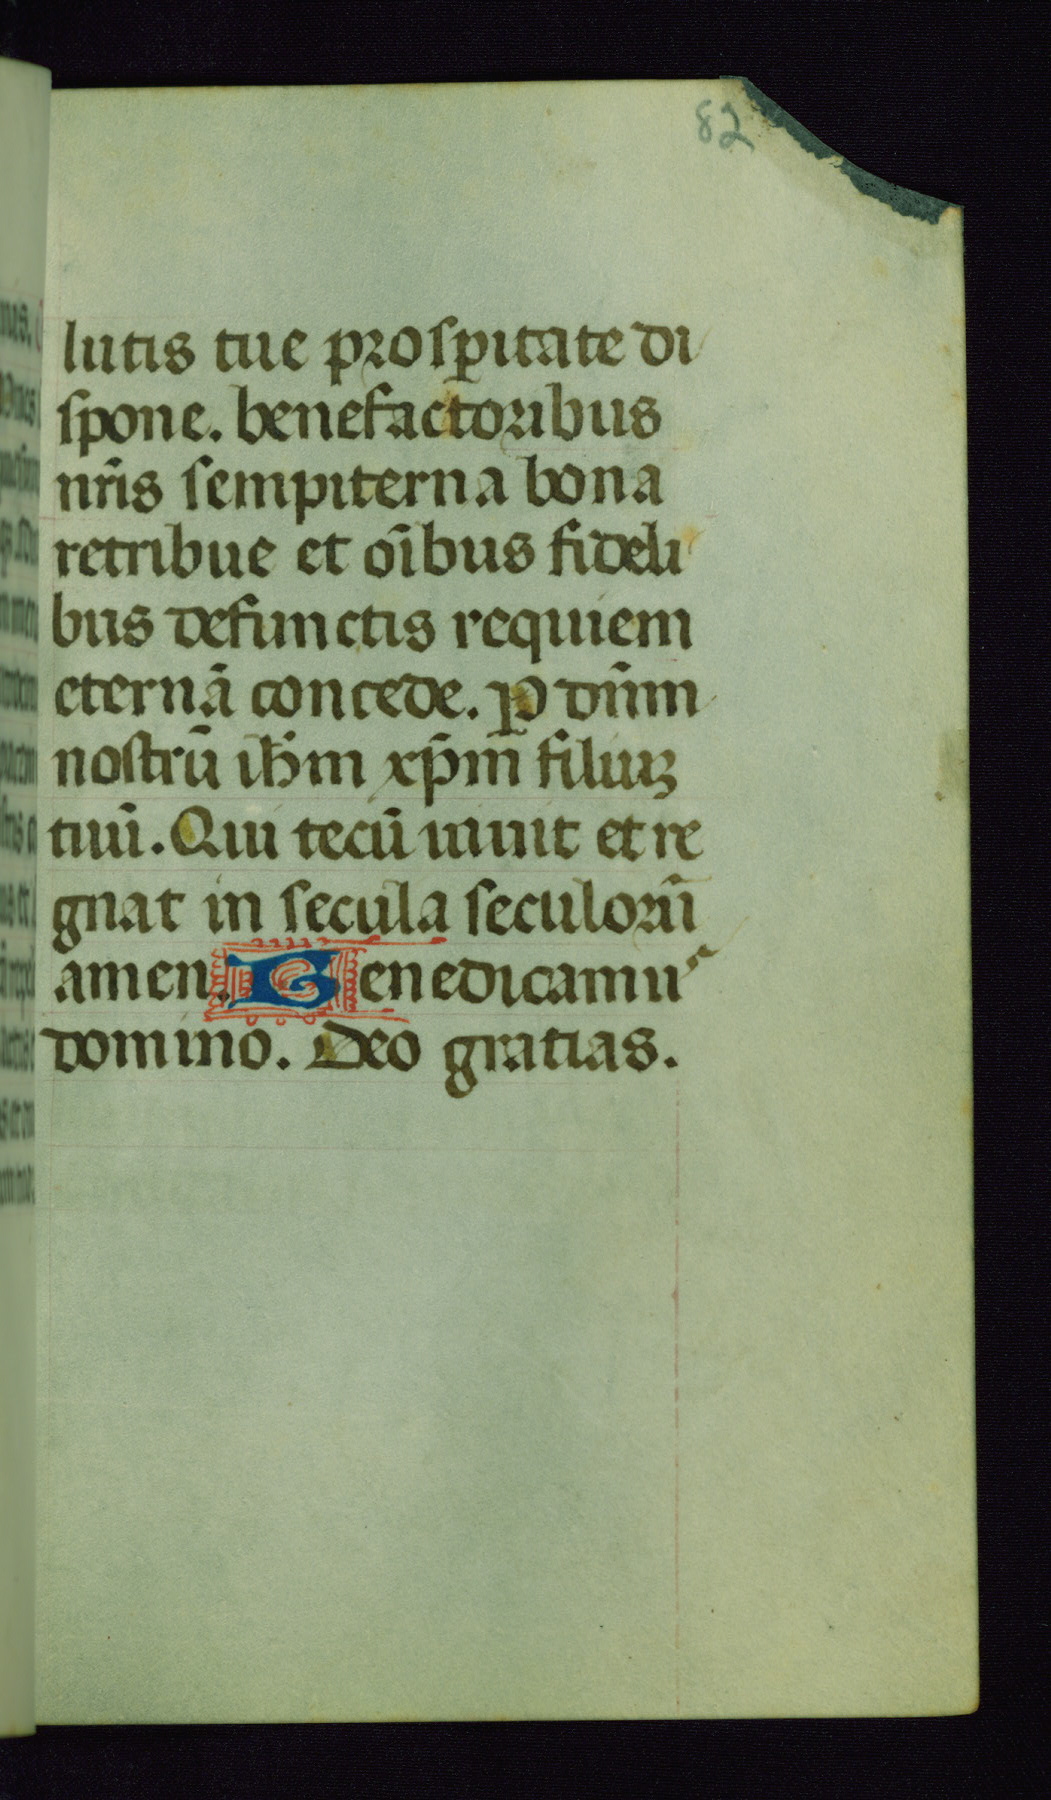 82
lutis tue prosꝑitate di
spone. benefactoribus
nr̄is sempiterna bona
retribue et oībus fideli
bus defunctis requiem
eternā concede. ꝑ dn̄m
nostrū ih̄m xp̄m filiuꝫ
tuū. Qui tecū uiuit et re
gnat in secula seculorū
amen. Benedicamus
domino. Deo gratias.